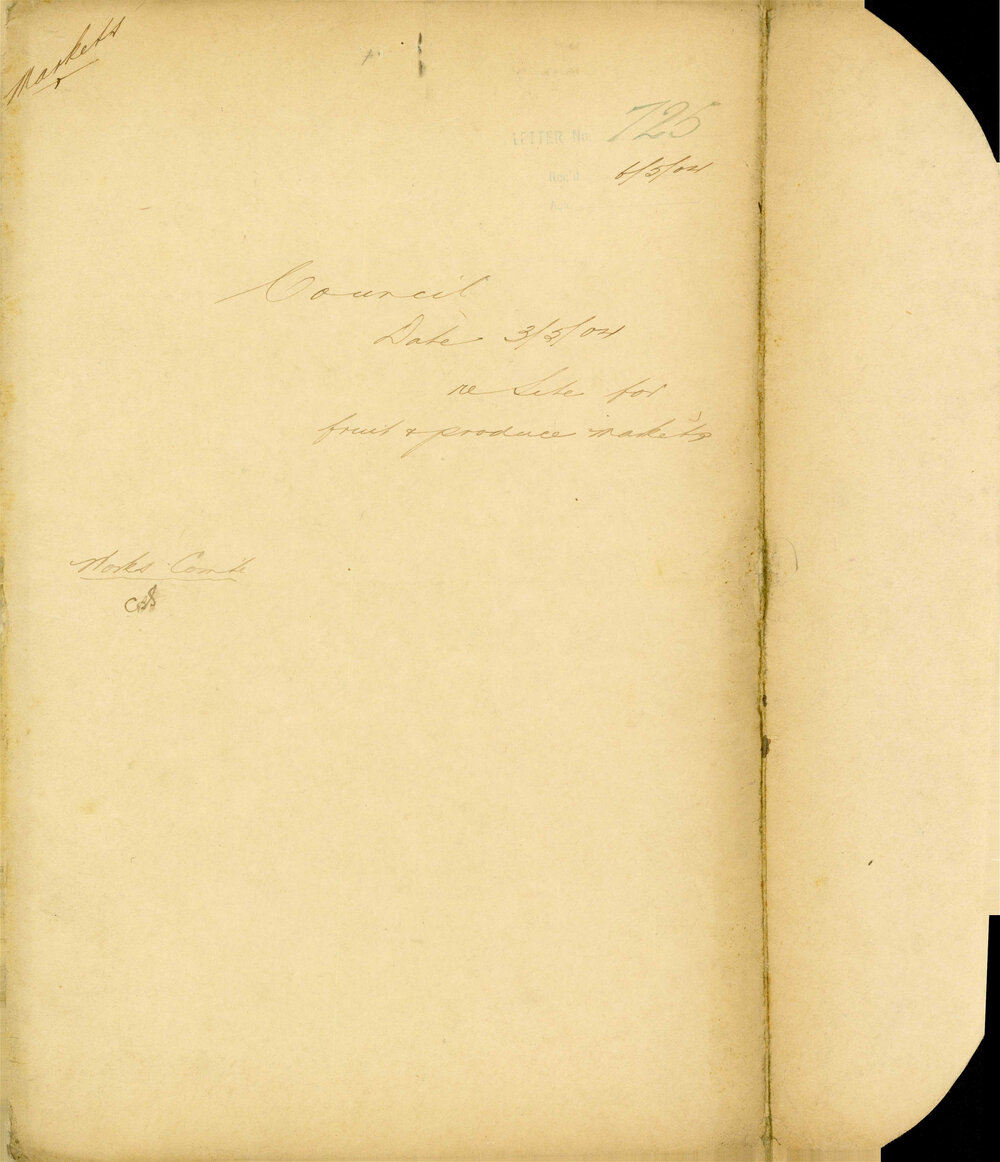 Markets
LETTER No. 725
Rec'd 6/5/04
Council
Date 3/5/04
re Site for
fruit & produce markets
Works Comte